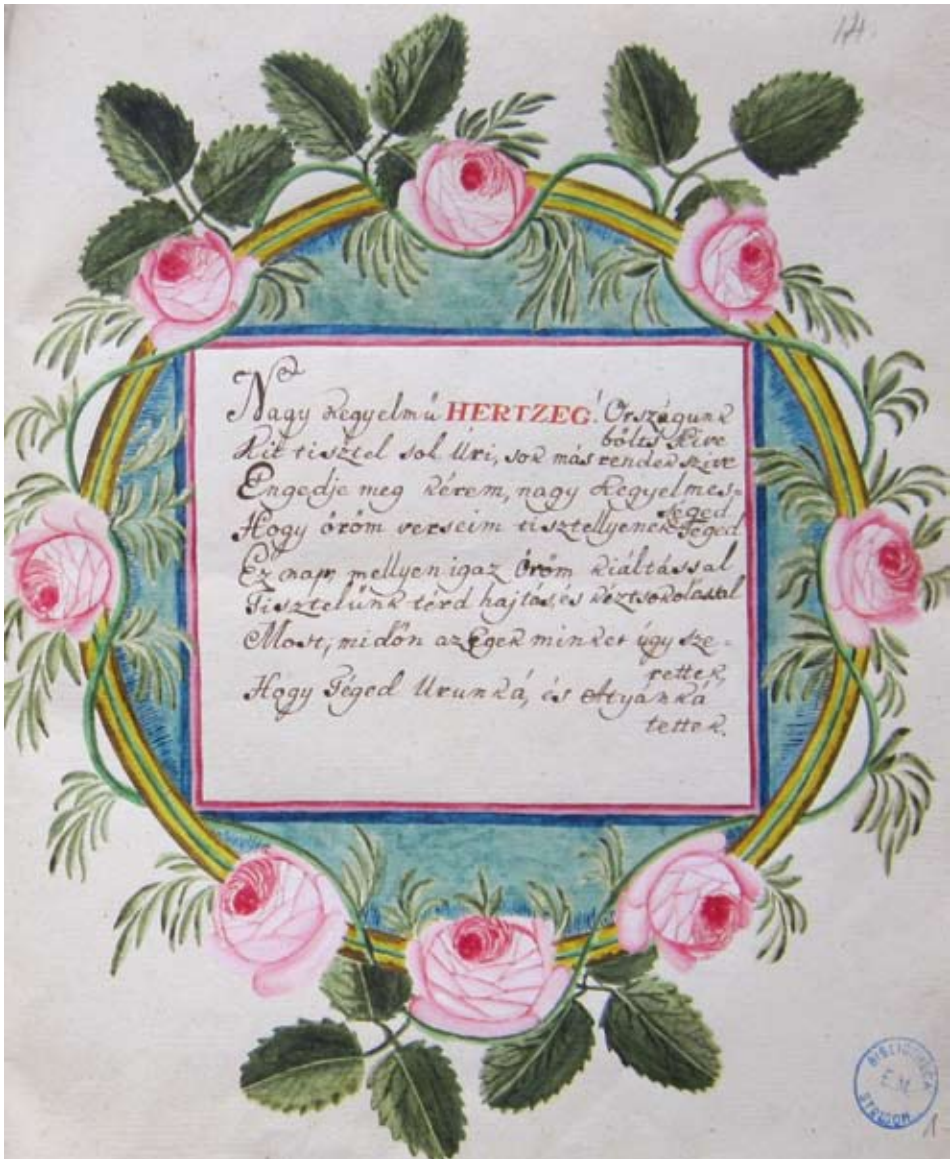 14.
Nagy Kegyelmű HERTZEG! Országunk
bölts Kive
Kit tisztel sok Úri, sok más rendek szive
Engedje meg kérem, nagy Kegyelmes=
séged
Hogy öröm verseim tisztellyenek Téged
Ez nap, mellyen igaz öröm kiáltással
Tisztelünk térd hajtás, és kéztsokolással
Most, midőn az Egek minket úgy sze=
rettek,
Hogy Téged Urunká, és Atyánká
tettek.
BIBLIOTHECA
E.M.
STRIGON
1